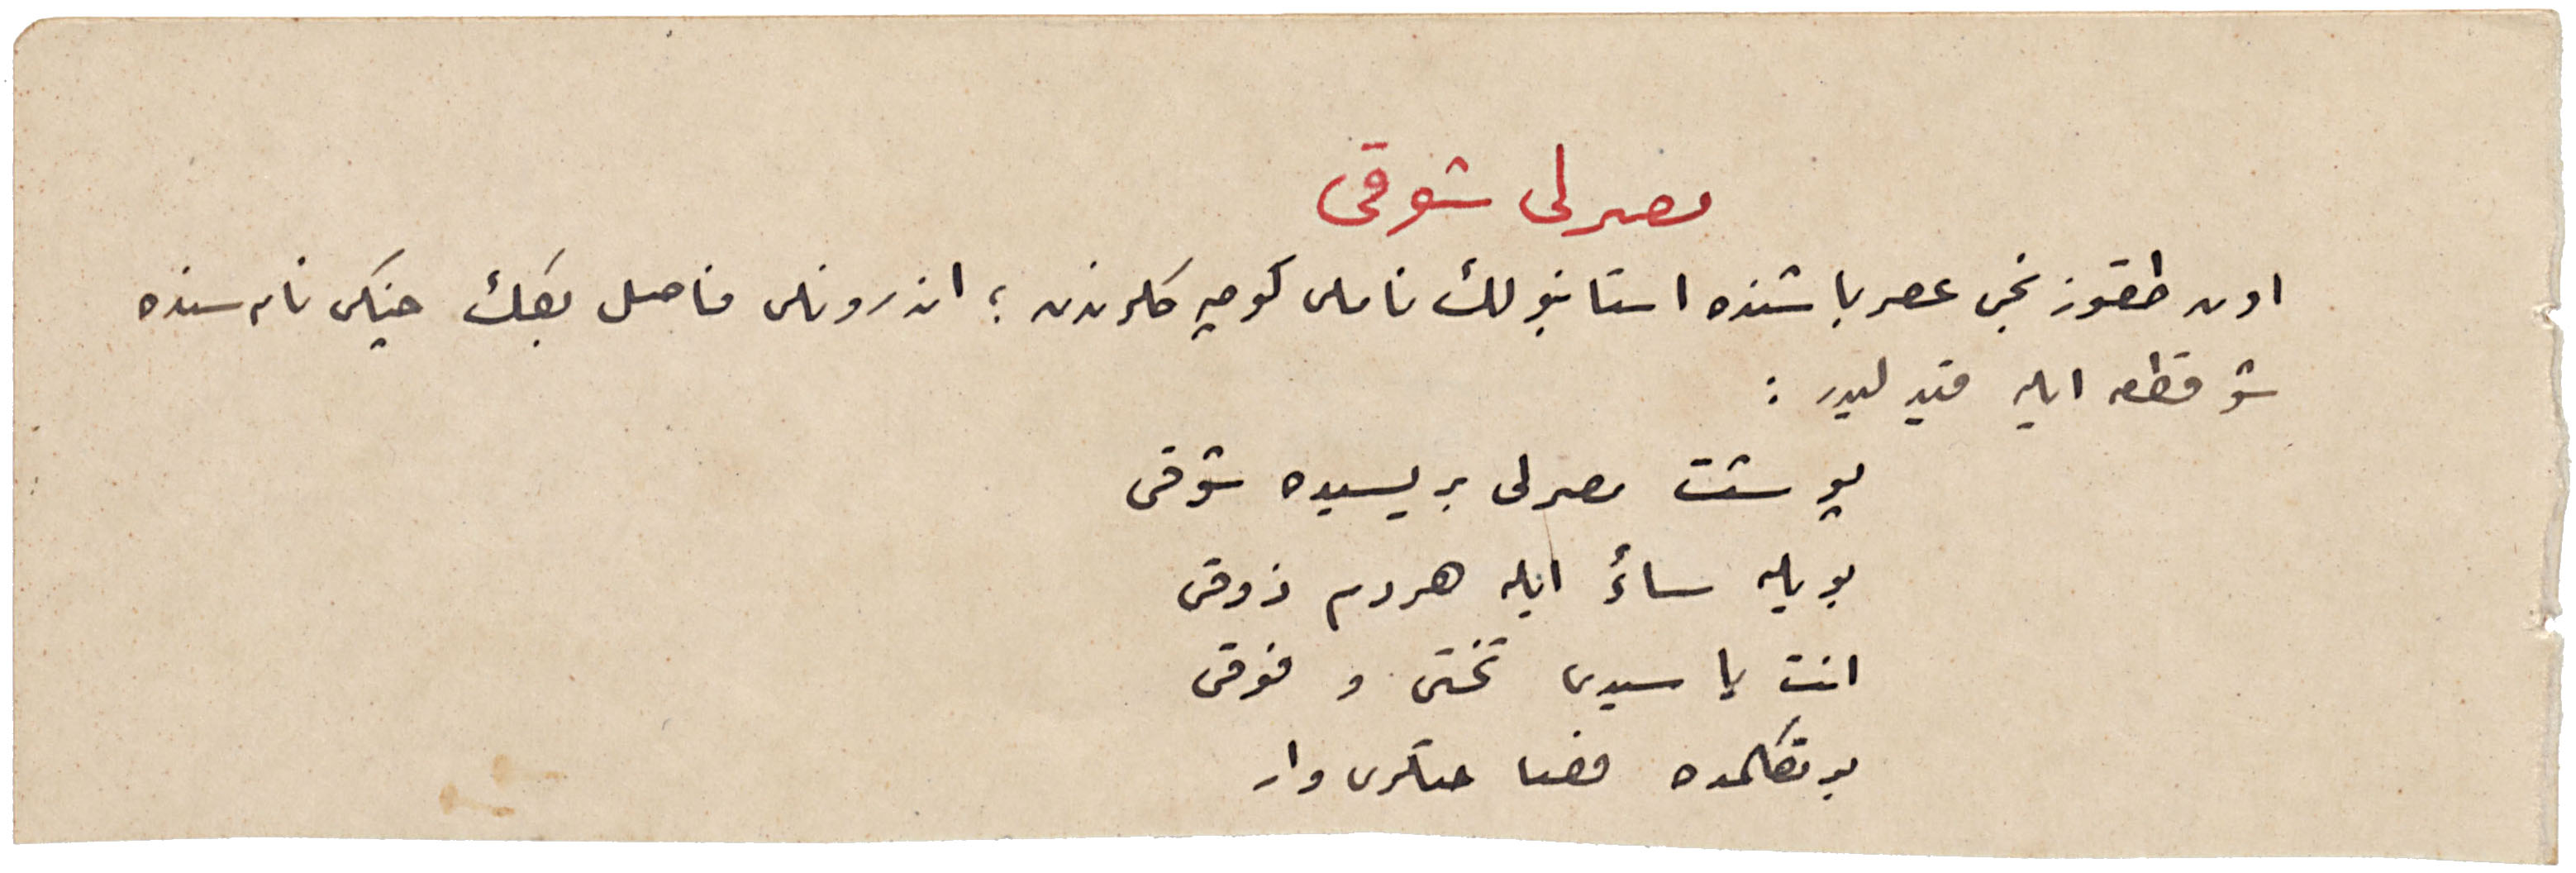 مصرلی شوقی
اون طقوزنجی عصر باشنده استانبولك ناملی كوچكلرندن ؛ اندرونلی فاضل بكك چنكی نامه سنده
شو قطعه ایله مقیدلیدر :
پوشت مصرلی بریسیده شوقی
بویله ساٸر ایله هردم ذوقی
انت یا سیدی تحتی و فوقی
بو تكلمده فضا وار